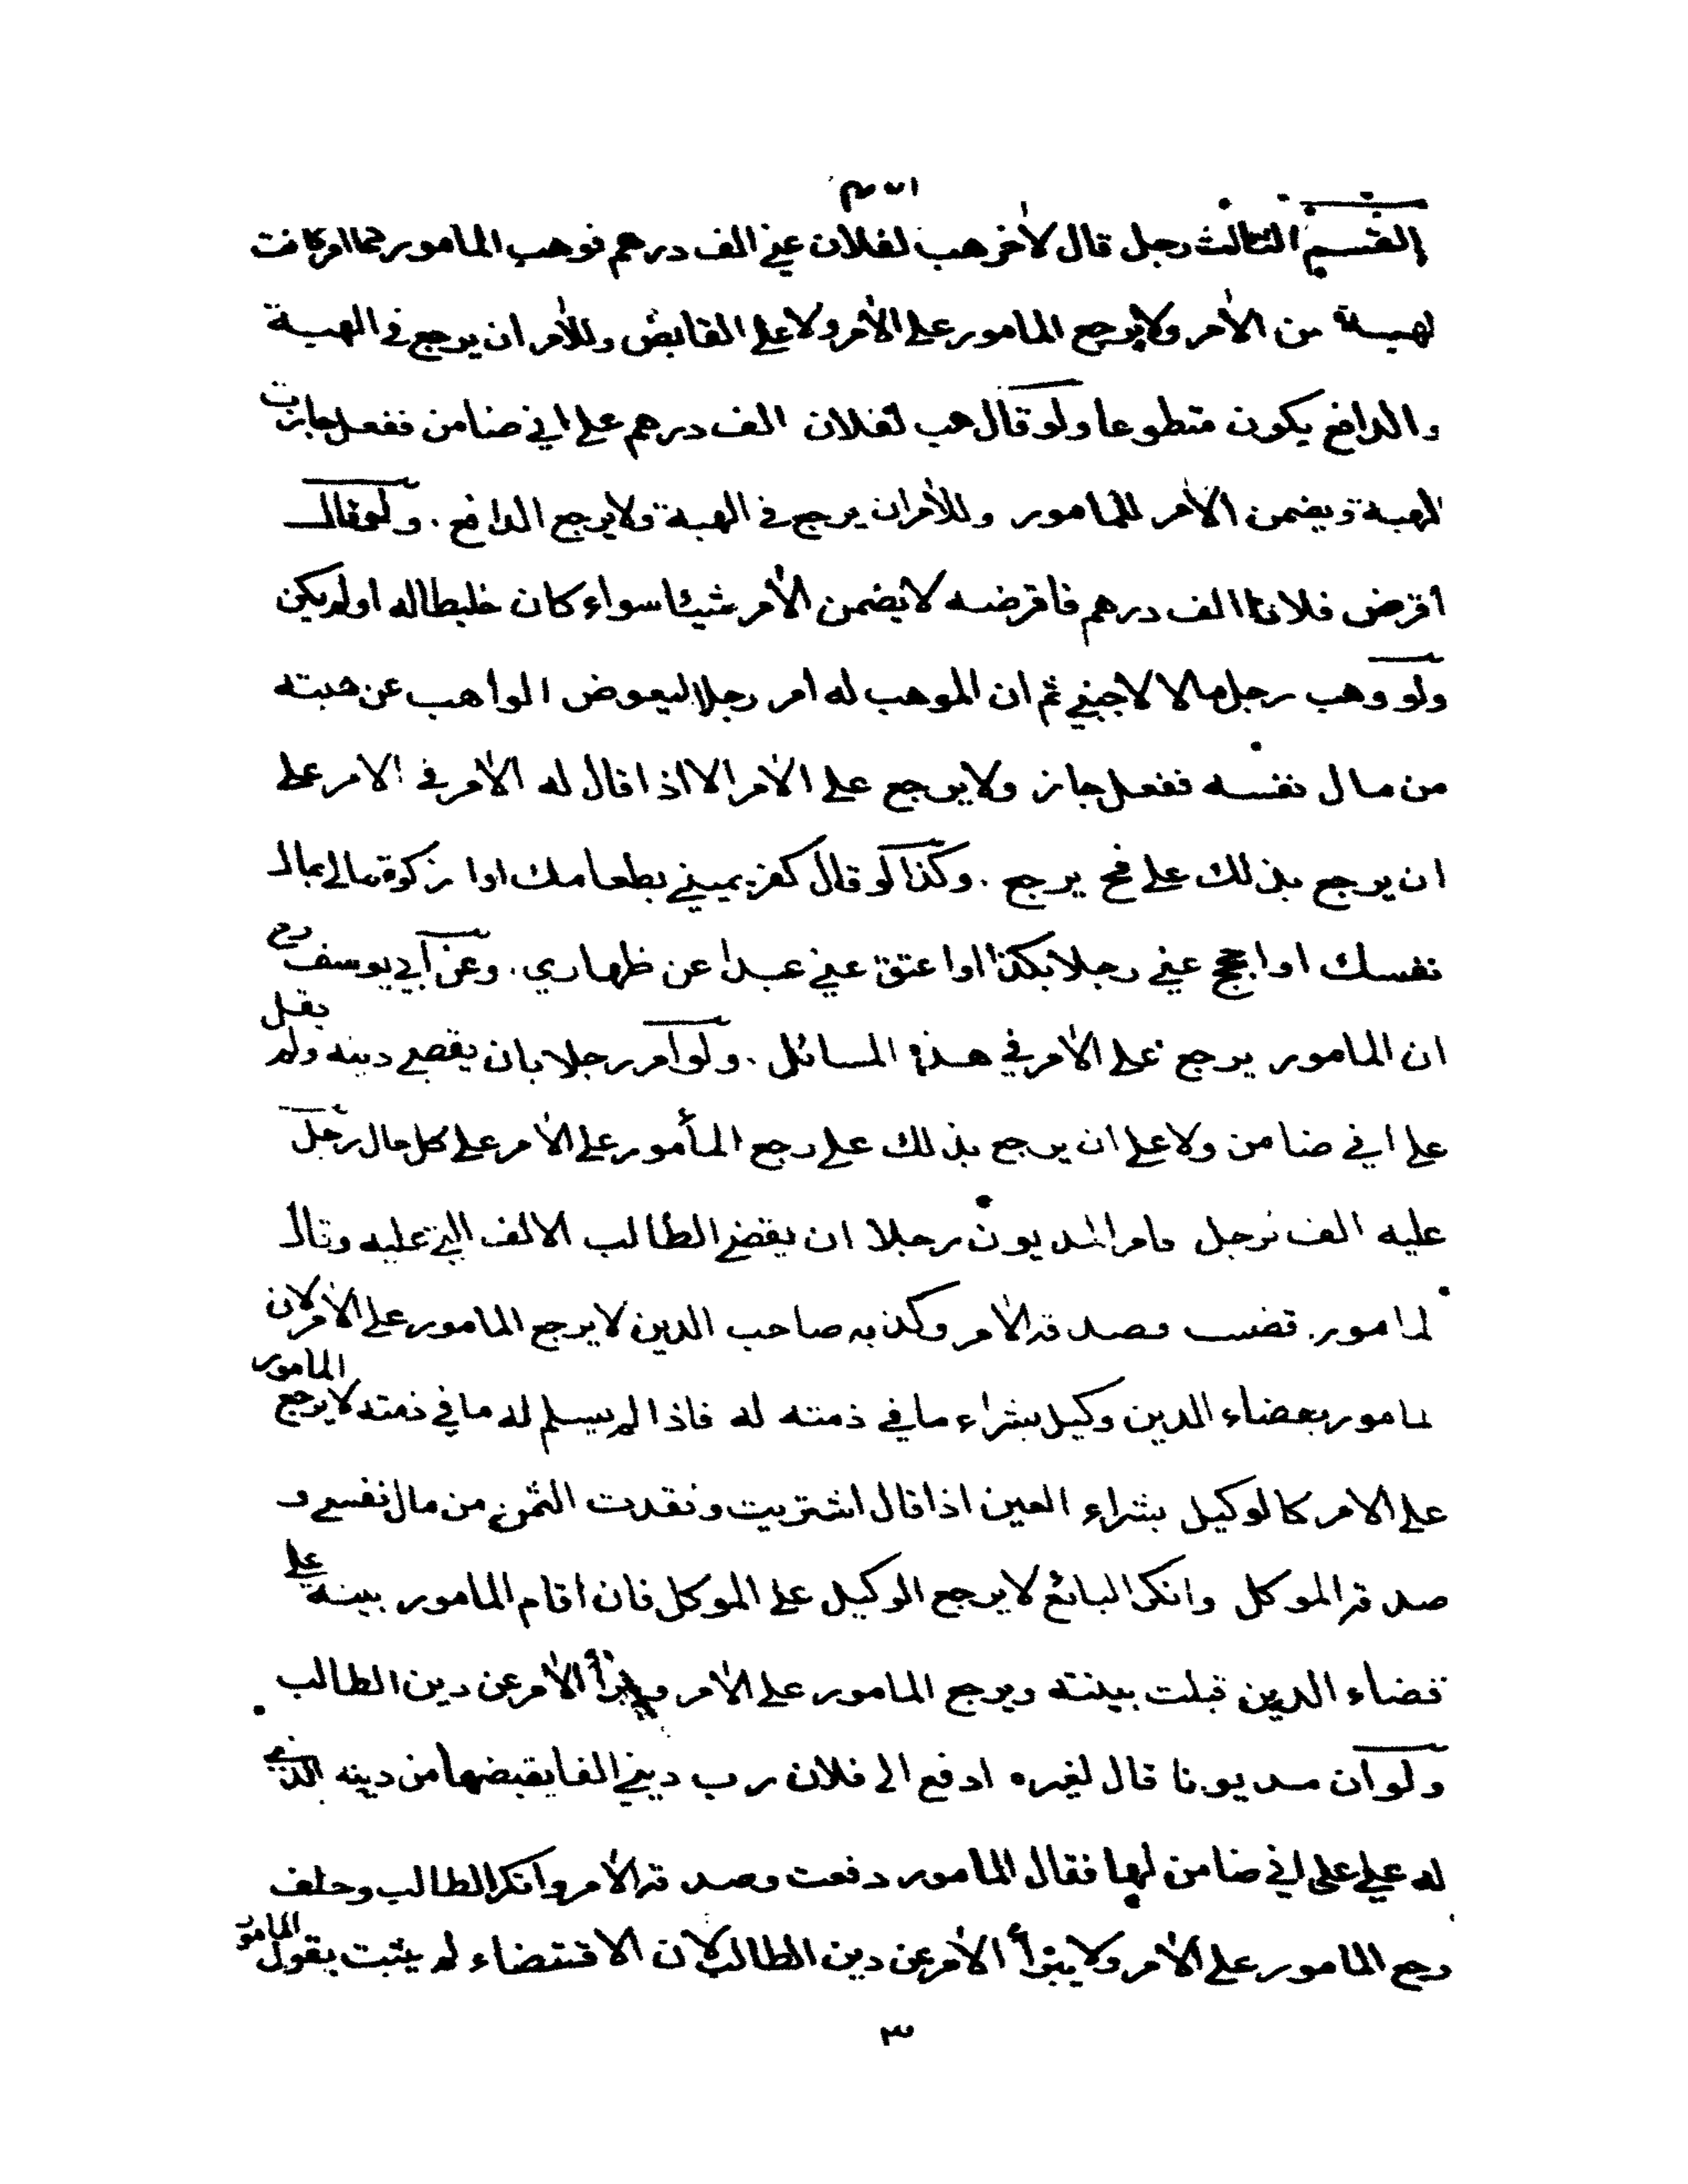 القسم الثالث رجل قال لآخر هب لفلان عني الف درهم فوهب المامور كما امر كانت
لهبة من الآمر ولا يرجع المامور على الآمر ولا على القابض وللآمر ان يرجع في الهبة
والدافع يكون متطوعا ولو قال هب لفلان الف درهم على اني ضامن ففعل جازت
الهبة ويضمن الآمر للمامور وللآمر ان يرجع في الهبة ولا يرجع الدافع . ولو قال
اقرض فلانا الف درهم فاقرضه لا يضمن الآمر شيئا سواء كان خليطا له اولم يكن
ولو وهب رجل مالا لاجنبي ثم ان الموهب له امر رجلا ليعوض الواهب عن هبته
من مال نفسه ففعل جاز ولا يرجع على الآمر الا اذا قال له الآمر في الامر على
ان يرجع بذلك علي فح يرجع . وكذا لو قال كفر يميني بطعامك او ا زكوة مالي بمال
نفسك او احجج عني رجلا بكذا او اعتق عني عبدا عن ظهاري . وعن ابي يوسف رح
ان المامور يرجع على الآمر في هذه المسائل . ولو امر رجلا بان يقضي دينه ولم يقل
على اني ضامن ولا على ان يرجع بذلك علي رجع المأمور على الآمر على كل حال رجل
عليه الف لرجل فامر المديون رجلا ان يقضي الطالب الالف التي عليه وقال
لمامور . قضيت وصدقه الآمر وكذبه صاحب الدين لا يرجع المامور على الآمر لان
لمامور بقضاء الدين وكيل بشراء ما في ذمته له فاذا لم يسلم له ما في ذمته لا يرجع المامور
على الامر كالوكيل بشراء العين اذا قال اشتريت ونقدت الثمن من مال نفسي و
صدقه الموكل وانكر البائع لا يرجع الوكيل على الموكل فان اقام المامور بينة على
قضاء الدين قبلت بينته ويرجع المامور على الآمر ويبرأ الآمر عن دين الطالب
ولو ان مديونا قال لغيره ادفع الى فلان رب ديني الفا يقبضها من دينه الذي
له علي على اني ضامن لها فقال المامور دفعت وصدقه الآمر وانكر الطالب وحلف
رجع المامور على الآمر ولا يبرأ الآمر عن دين الطالب لان الاقتضاء لم يثبت بقول المامور
٣